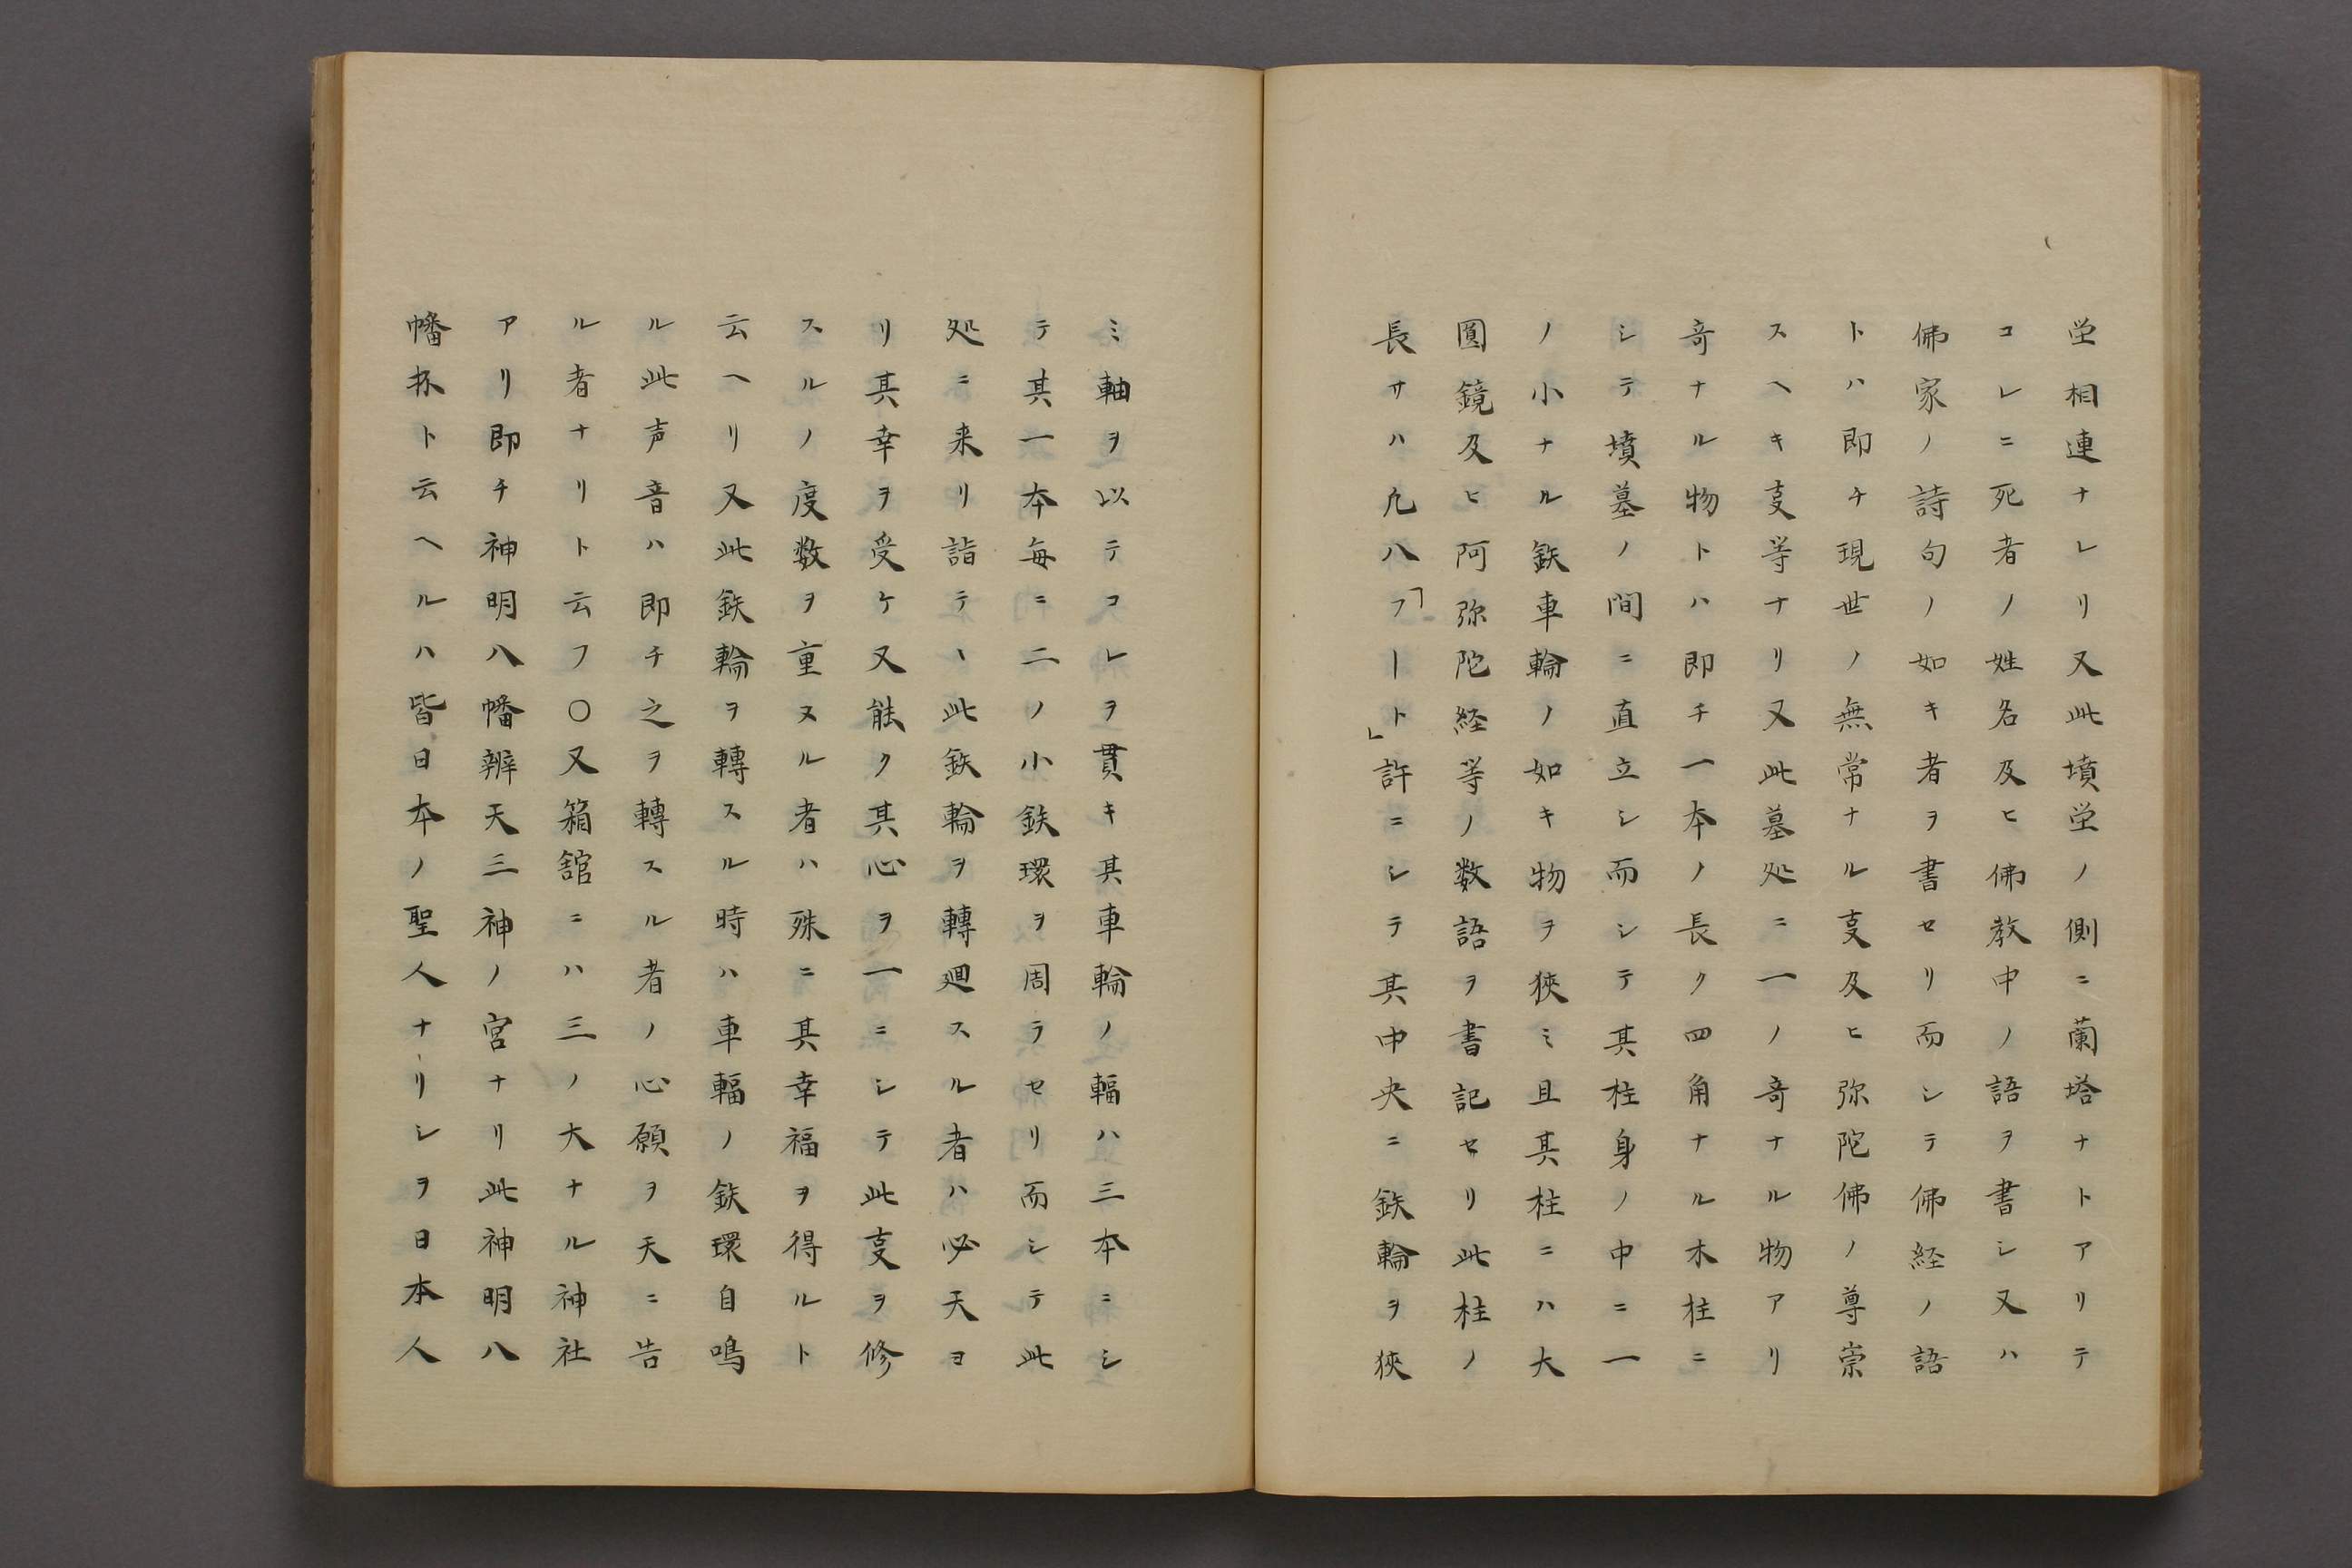 塋相連ナレリ又此墳塋ノ側ニ蘭塔ナトアリテ
コレニ死者ノ姓名及ヒ佛教中ノ語ヲ書シ又ハ
佛家ノ詩句ノ如キ者ヲ書セリ而シテ佛経ノ語
トハ即チ現世ノ無常ナル𫝆及ヒ弥陀佛ノ尊崇
スヘキ𫝆等ナリ又此墓処ニ一ノ竒ナル物アリ
竒ナル物トハ即チ一本ノ長ク四角ナル木柱ニ
シテ墳墓ノ間ニ直立シ而シテ其柱身ノ中ニ一
ノ小ナル鉄車輪ノ如キ物ヲ狹ミ且其柱ニハ大
圓鏡及ヒ阿弥陀経等ノ数語ヲ書記セリ此柱ノ
長サハ凢八「フート」許ニシテ其中央ニ鉄輪ヲ狹
ミ軸ヲ以テコレヲ貫キ其車輪ノ輻ハ三本ニシ
テ其一本毎ニ二ノ小鉄環ヲ周ラセリ而シテ此
処ニ来リ詣テヽ此鉄輪ヲ轉廻スル者ハ必天ヨ
リ其幸ヲ受ケ又能ク其心ヲ一ニシテ此𫝆ヲ修
スルノ度数ヲ重ヌル者ハ殊ニ其幸福ヲ得ルト
云ヘリ又此鉄輪ヲ轉スル時ハ車輻ノ鉄環自鳴
ル此声音ハ即チ之ヲ轉スル者ノ心願ヲ天ニ告
ル者ナリト云フ〇又箱舘ニハ三ノ大ナル神社
アリ即チ神明八幡辨天三神ノ宮ナリ此神明八
幡抔ト云ヘルハ皆日本ノ聖人ナリシヲ日本人